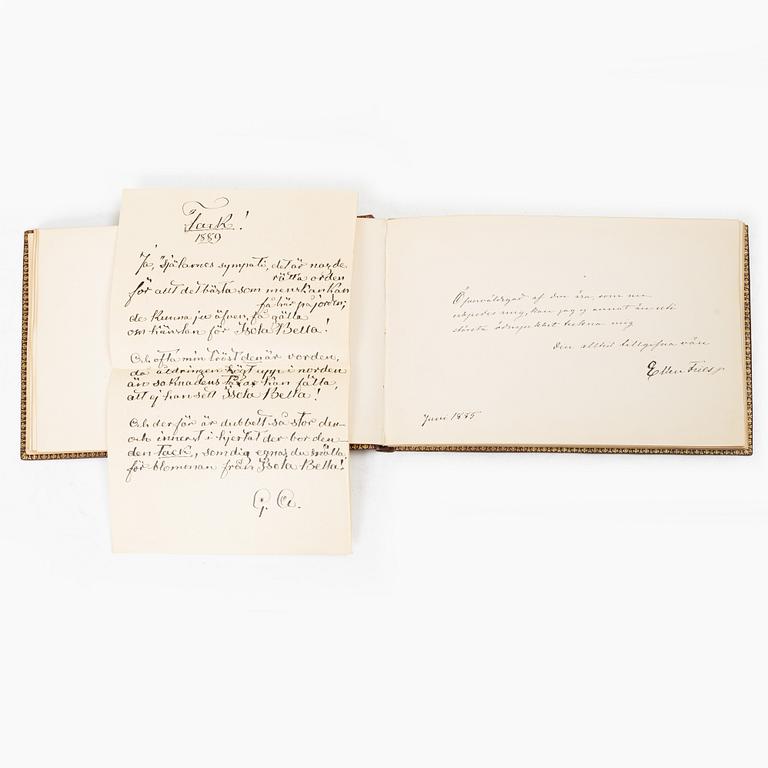 Tack!
1889
Ja, "själarnes sympati, det är nog de
rätta orden
för allt det bästa som menskan kan
få här på jorden;
de kunna ju äfven få gälla
om känslan för Isola Bella!
Och ofta min tröst den är vorden,
då aldringen högt uppe i norden
än saknadens tårar kan fälla,
att ej han sett Isola Bella!
Och derför är dubbelt så stor den
och innerst i hjertat der bor den
den tack, som dig egnas du snälla
för blomman från Isola Bella!
G. A.
Öfverväldigad af den ära, som nu
mig, kan jag ej annat än uti
största ödmjukhet teckna mig
den alltid tillgifna vän
Ellen Fries
Juni 1885